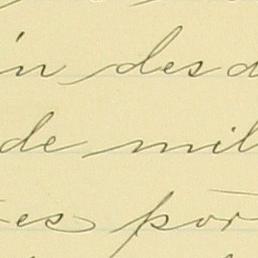 in desd
de mil
es por